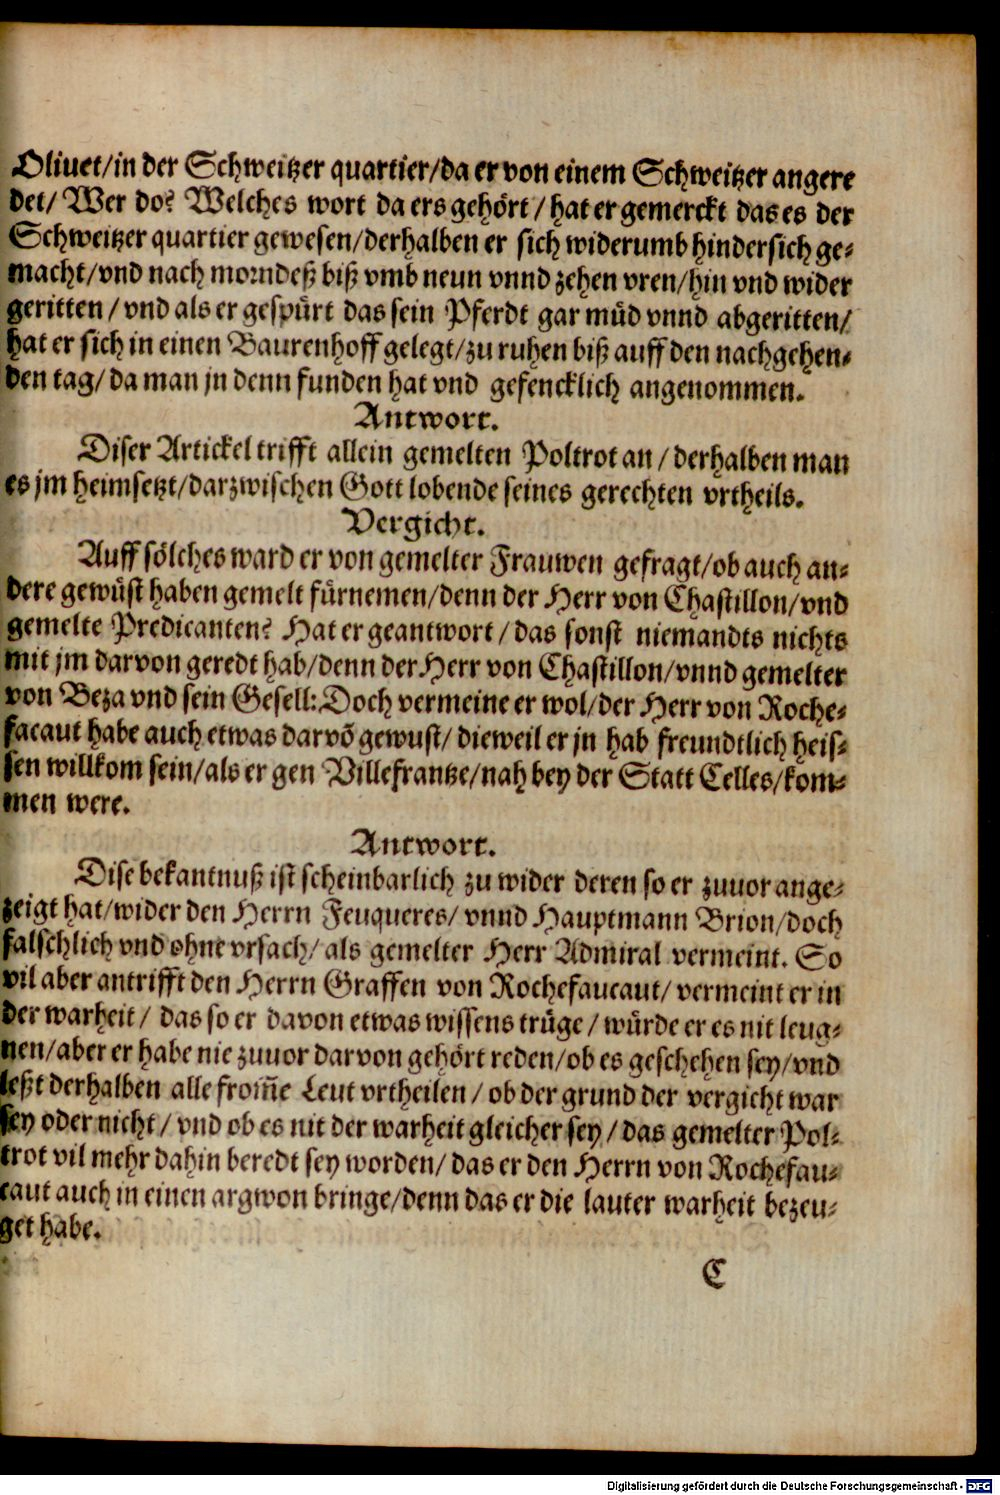 Oliuet/in der Schweitzer quartier/da er von einem Schweitzer angere
det/ Wer do? Welches wort da ers gehört/ hat er gemerckt das es der
Schweitzer quartier gewesen/derhalben er sich widerumb hindersich ge-
macht/vnd nach morndeß biß vmb neun vnnd zehen vren/hin vnd wider
geritten/ vnd als er gespürt das sein Pferdt gar müd vnnd abgeritten/
hat er sich in einen Baurenhoff gelegt/zu ruhen biß auff den nachgehen-
den tag/ da man jn denn funden hat vnd gefencklich angenommen.
Antwort.
Diser Artickel trifft allein gemelten Poltrot an/ derhalben man
es jm heimsetzt/darzwischen Gott lobende seines gerechten vrtheils.
Vergicht.
Auff sölches ward er von gemelter Frauwen gefragt/ob auch an-
dere gewüst haben gemelt fürnemen/denn der Herr von Chastillon/vnd
gemelte Predicanten? Hat er geantwort/ das sonst niemandts nichts
mit jm darvon geredt hab/denn der Herr von Chastillon/vnnd gemelter
von Beza vnd sein Gesell: Doch vermeine er wol/der Herr von Roche-
facaut habe auch etwas darvõ gewust/ dieweil er jn hab freundtlich heis-
sen willkom sein/als er gen Villefrantze/nah bey der Statt Celles/kom-
men were.
Antwort.
Dise bekantnuß ist scheinbarlich zu wider deren so er zuuor ange-
zeigt hat/wider den Herrn Feuqueres/ vnnd Hauptmann Brion/doch
falschlich vnd ohne vrsach/ als gemelter Herr Admiral vermeint. So
vil aber antrifft den Herrn Graffen von Rochefaucaut/ vermeint er in
der warheit/ das so er davon etwas wissens trüge/ würde er es nit leug-
nen/aber er habe nie zuuor darvon gehört reden/ob es geschehen sey/vnd
leßt derhalben alle from̃e Leut vrtheilen/ ob der grund der vergicht war
sey oder nicht/ vnd ob es nit der warheit gleicher sey/ das gemelter Pol-
trot vil mehr dahin beredt sey worden/ das er den Herrn von Rochefau-
caut auch in einen argwon bringe/denn das er die lauter warheit bezeu-
get habe.
C
Digitalisierung gefördert durch die Deutsche Forschungsgemeinschaft - DFG